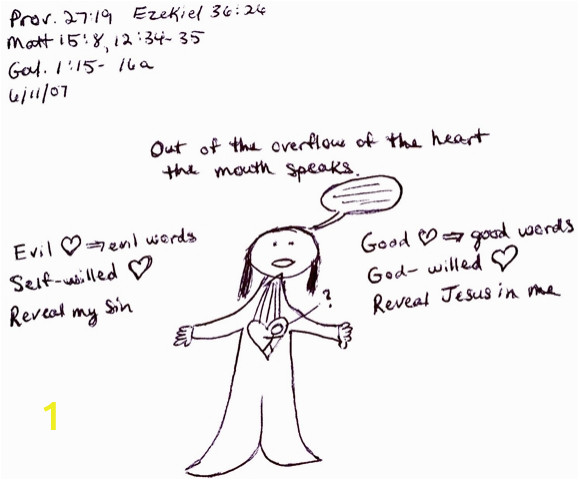 Prov. 27:19 Ezekiel 36:26
Matt 15:8, 12:34-35
Gal. 1:15-16a
6/11/07
Out of the overflow of the heart
the mouth speaks.
Evil ♡ ⇒ evil words
Self-willed ♡
Reveal my Sin
Good ♡ ⇒ good words
God-willed ♡
Reveal Jesus in me
?
1